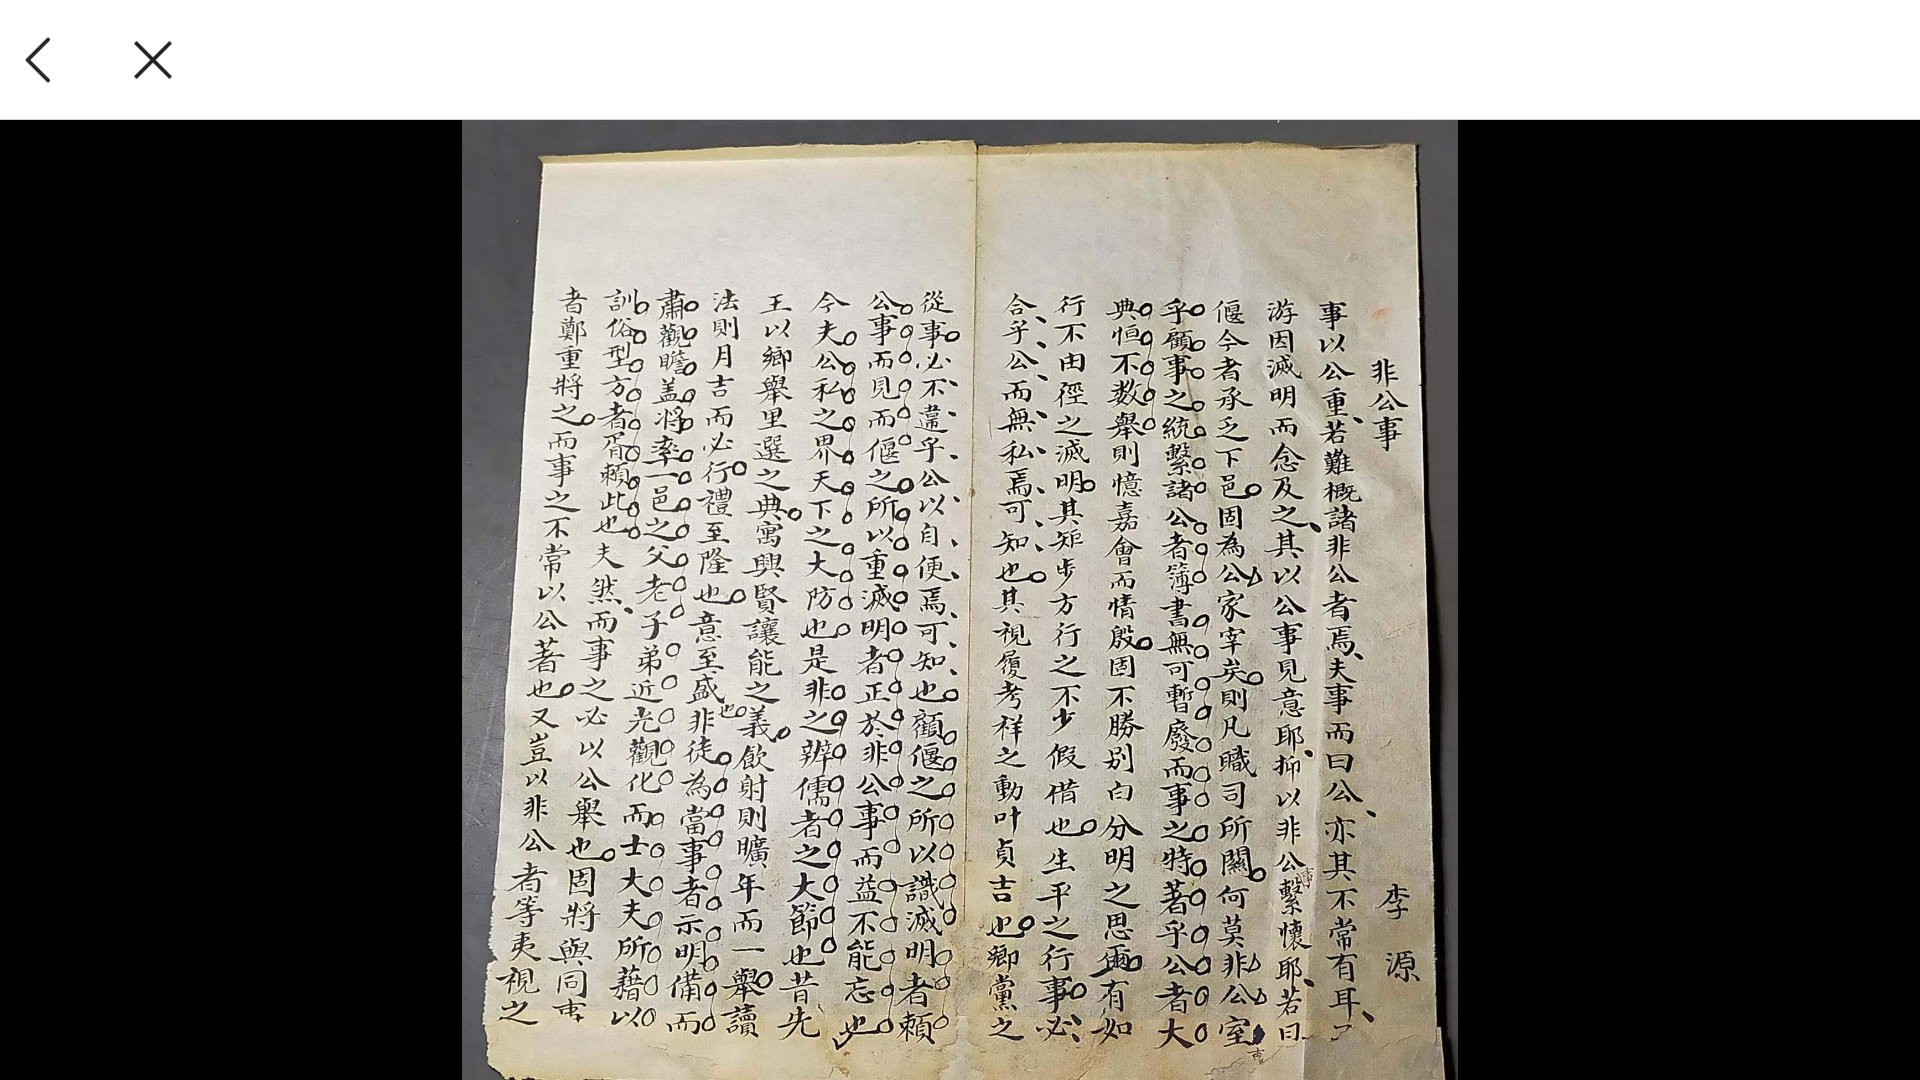 非公事 李源
事以公重若難概諸非公者焉夫事而曰公亦其不常有耳
游因滅明而念及之其以公事見意耶抑以非公事繫懷耶若曰
偃今者承乏下邑固為公家宰矣則凡職司所關何莫非公室
乎顧事之統繫諸公者簿書無可暫廢而事之特著乎公者大
典恒不数舉則憶嘉會而情殷固不勝别白分明之思爾有如
行不由徑之滅明其矩步方行之不少假借也生平之行事必
合乎公而無私焉可知也其視履考祥之動叶貞吉也鄉黨之
從事必不違乎公以自便焉可知也顧偃之所以識滅明者賴
公事而見而偃之所以重滅明者正於非公事而益不能忘也
今夫公私之界天下之大防也是非之辨儒者之大節也昔先
王以鄉舉里選之典寓興賢讓能之義飲射則曠年而一舉讀
法則月吉而必行禮至隆也意至盛也非徒為當事者示明備而
肅觀瞻盖將率一邑之父老子弟近光觀化而士大夫所藉以
訓俗型方者胥賴此也夫然而事之必以公舉也固將與同事
者鄭重將之而事之不常以公著也又豈以非公者等夷視之